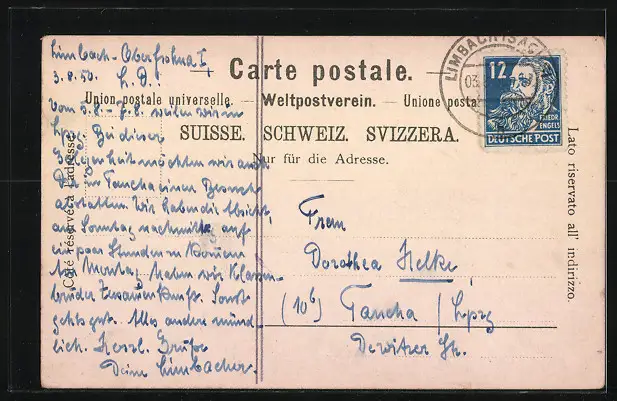 Limbach-Oberfrohna I,
3.8.50. L. D.:
Vom 5.8.-7.8. weilen wir in
Lpzg. Bei dieser
Gelegenheit möchten wir auch
Dir in Taucha einen Besuch
abstatten. Wir haben die Absicht,
am Sonntag nachmitt. auf
ein paar Stunden zu kommen.
Montag haben wir Klassen-
brüder Zusammenkunft. Sonst
geht's gut. Alles andere münd-
lich. Herzl. Grüße
Deine Limbacher.
Carte postale.
Union postale universelle. — Weltpostverein. — Unione posta
SUISSE. SCHWEIZ. SVIZZERA.
Nur für die Adresse.
Côté réservé à l'adresse.
Lato riservato all' indirizzo.
LIMBACH (SACH
03.
12
FRIEDR
ENGELS
DEUTSCHE POST
Frau
Dorothea Helke
(10b) Taucha / Lpzg
Dewitzer Str.